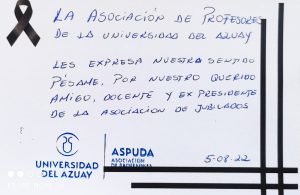 LA ASOCIACIÓN DE PROFESORES
DE LA UNIVERSIDAD DEL AZUAY
LES EXPRESA NUESTRO SENTIDO
PÉSAME, POR NUESTRO QUERIDO
AMIGO, DOCENTE Y EX PRESIDENTE
DE LA ASOCIACION DE JUBILADOS
UNIVERSIDAD
DEL AZUAY
ASPUDA
ASOCIACIÓN
DE PROFESORES
5-08-22